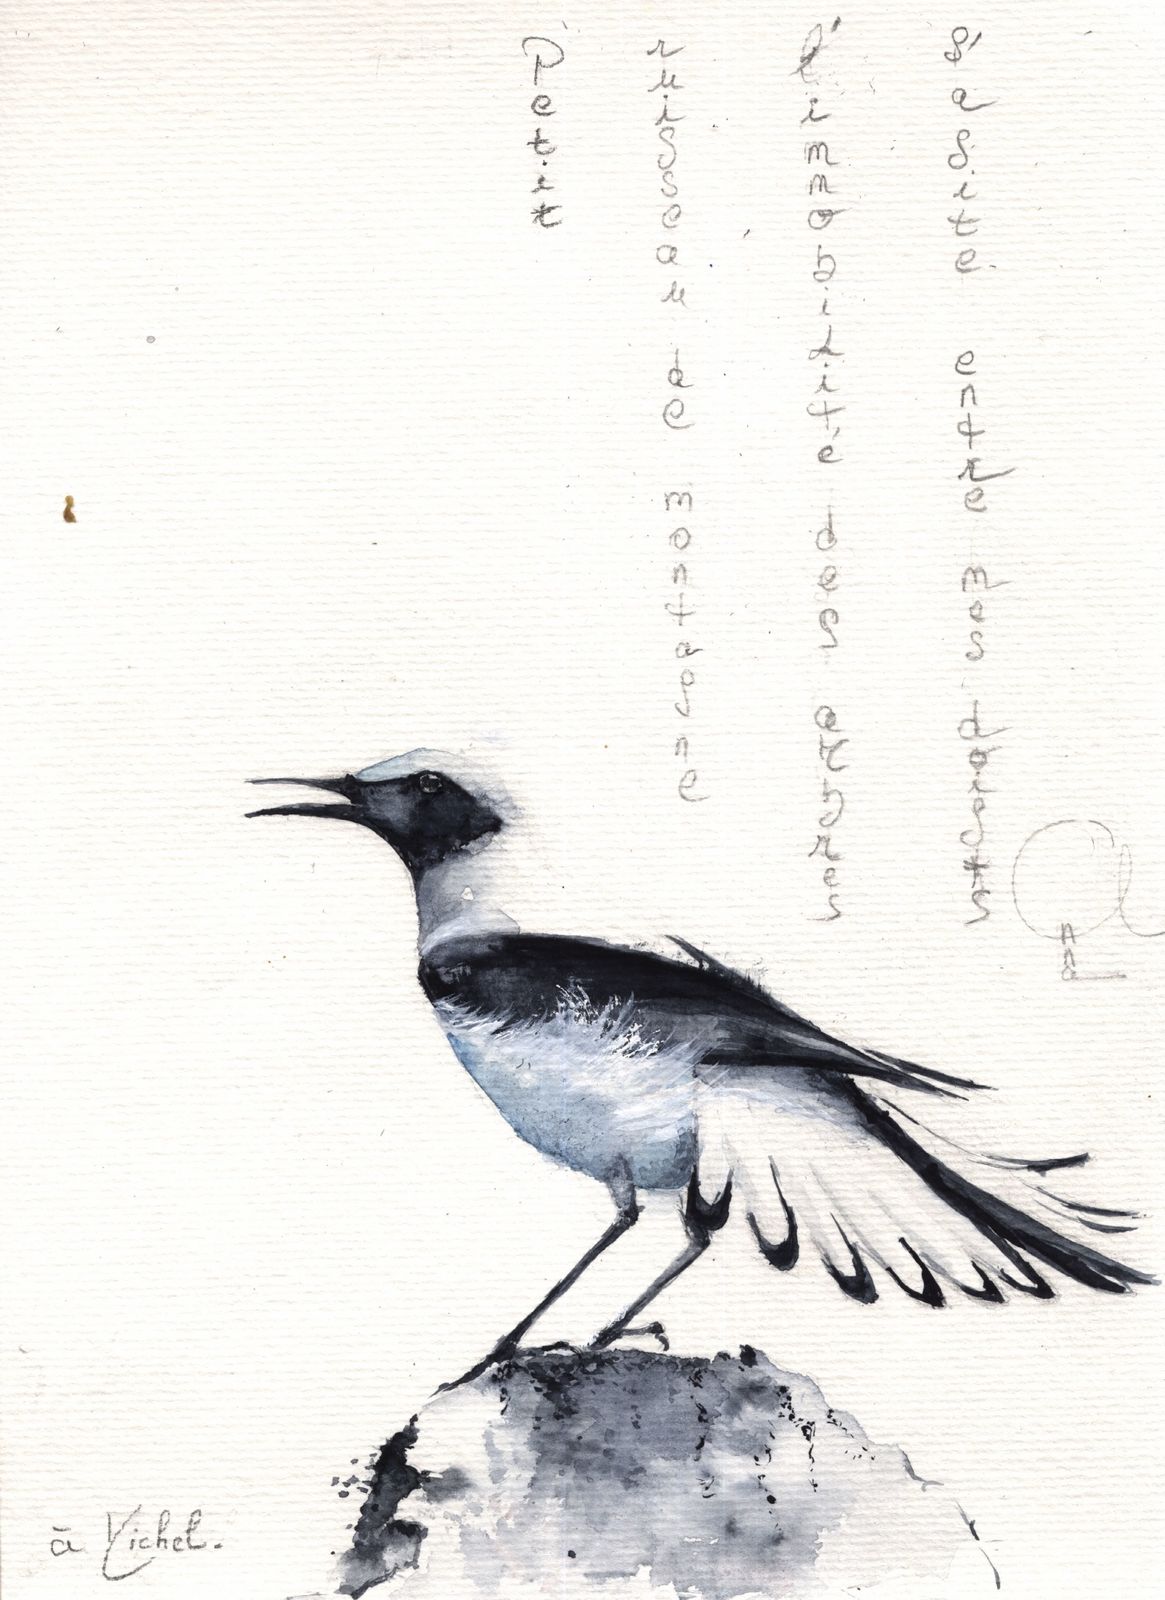 Petit
ruisseau de montagne
l'immobilité des arbres
s'agite entre mes doigts
à Michel.